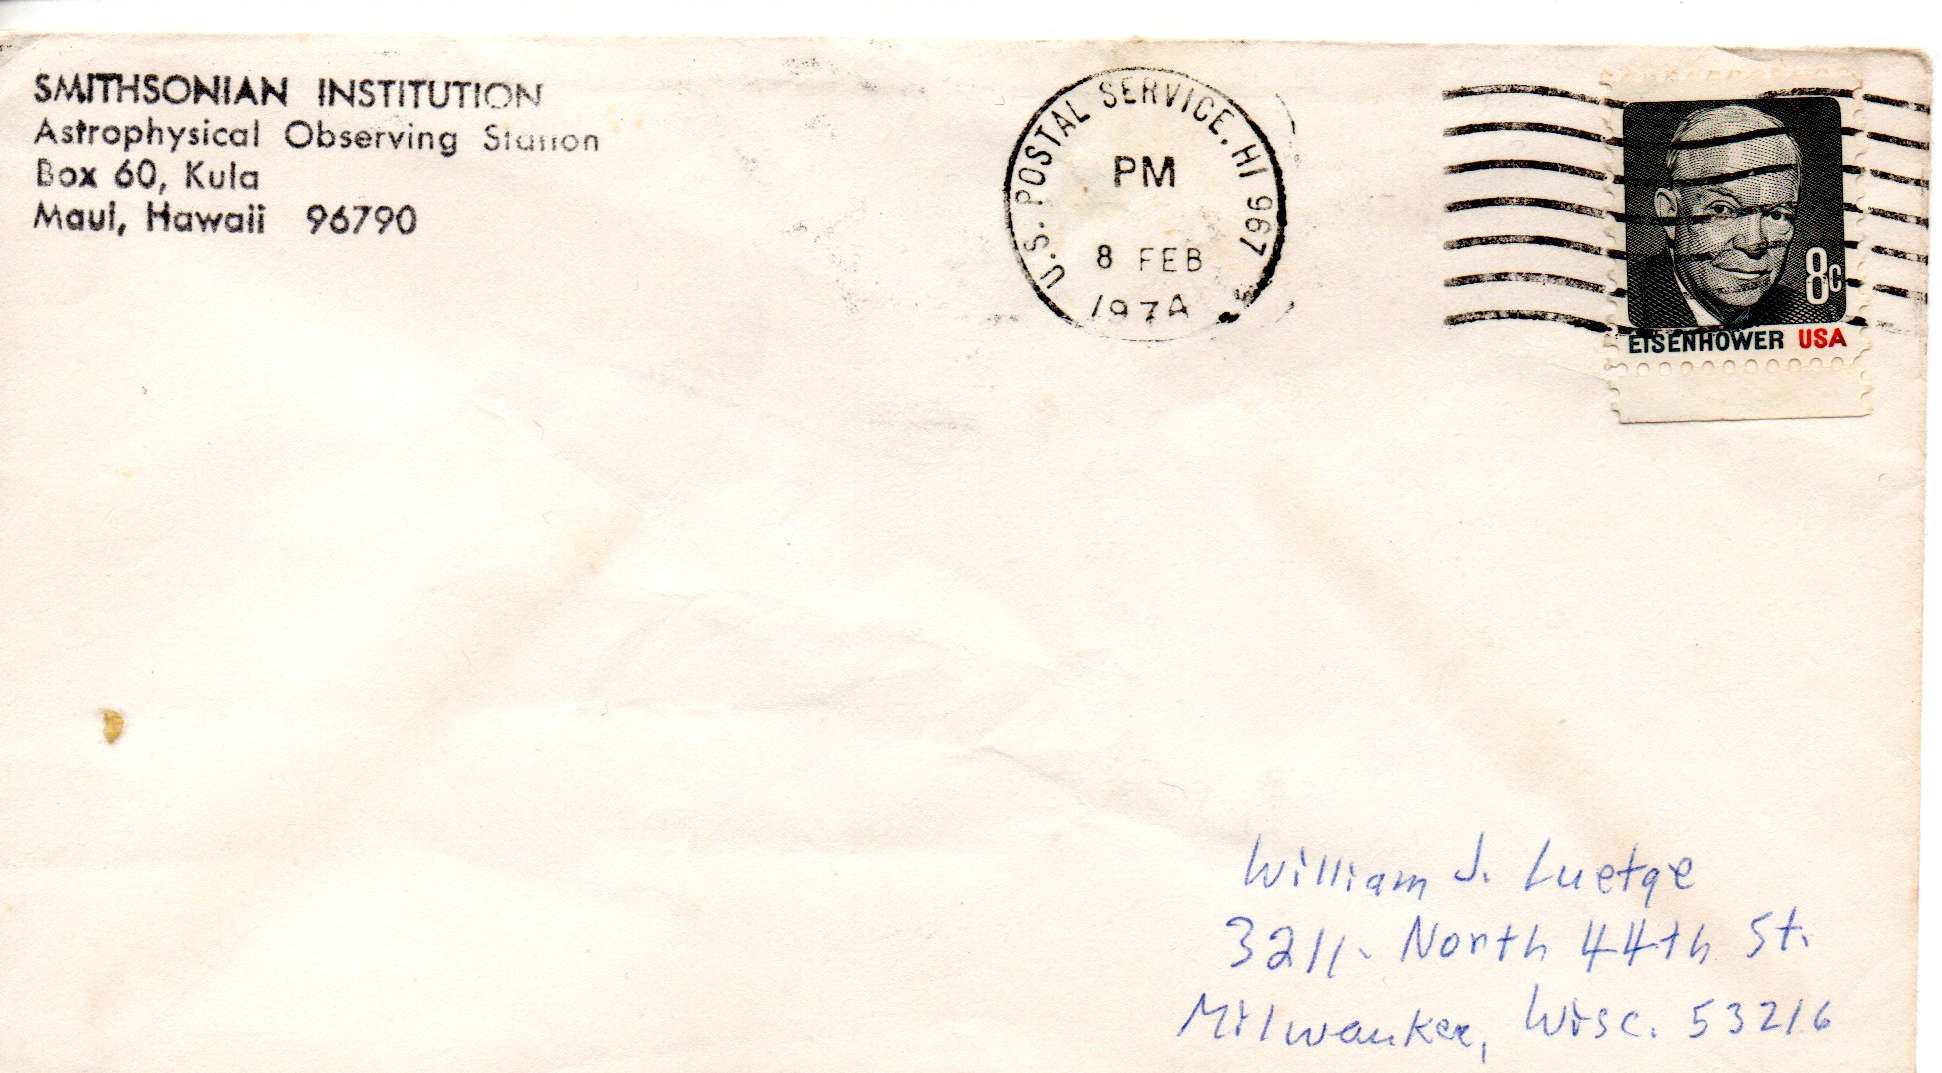 SMITHSONIAN INSTITUTION
Astrophysical Observing Station
Box 60, Kula
Maui, Hawaii 96790
U.S. POSTAL SERVICE, HI 967
PM
8 FEB
1974
8c
EISENHOWER USA
William J. Luetge
3211- North 44th St.
Milwaukee, Wisc. 53216